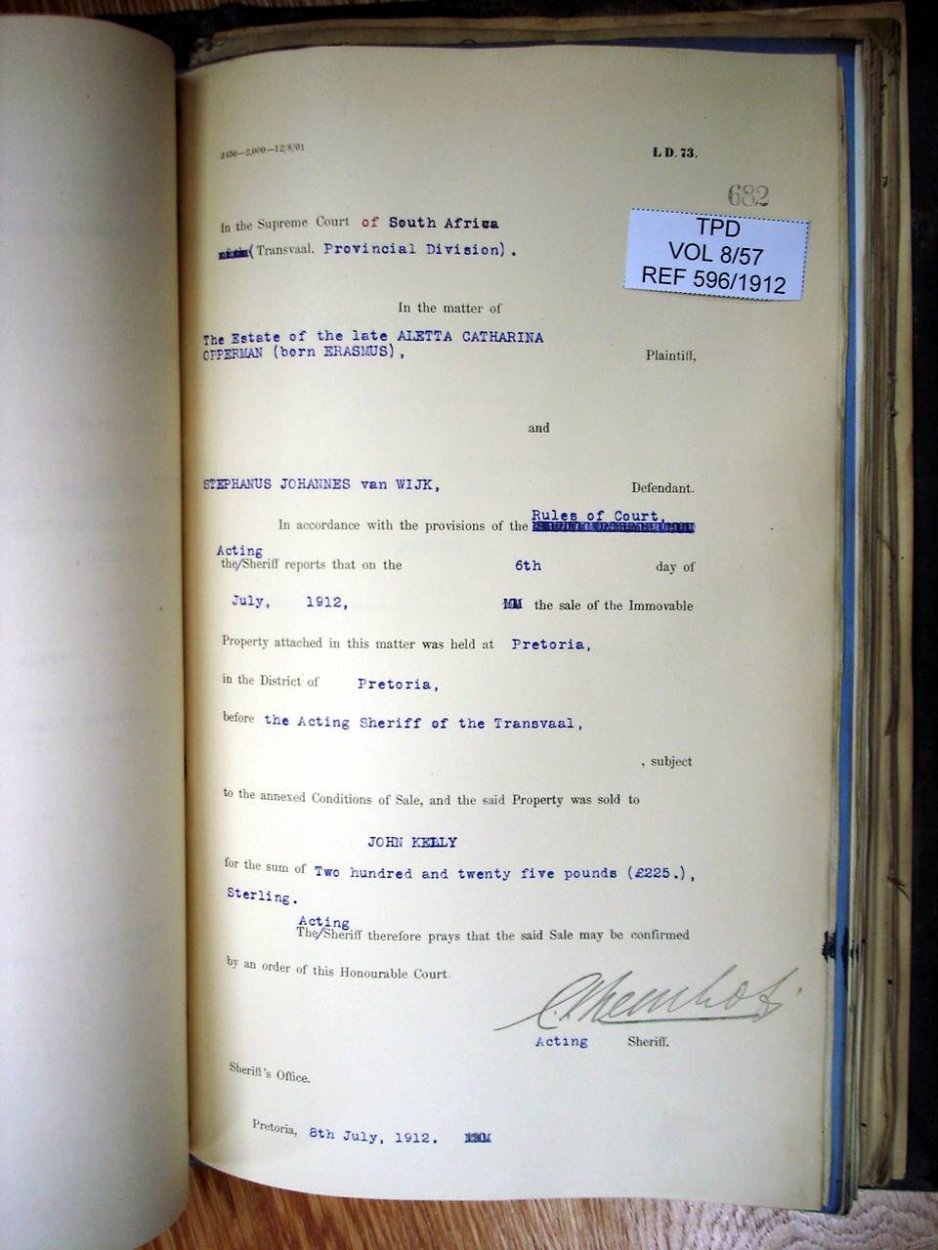 J 486—2,000—12/8/01
L D. 73.
682
TPD
VOL 8/57
REF 596/1912
In the Supreme Court of South Africa
(Transvaal. Provincial Division).
In the matter of
The Estate of the late ALETTA CATHARINA
OPPERMAN (born ERASMUS),
Plaintiff,
and
STEPHANUS JOHANNES van WIJK,
Defendant.
Rules of Court,
In accordance with the provisions of the
Acting
the/Sheriff reports that on the 6th day of
July, 1912, the sale of the Immovable
Property attached in this matter was held at Pretoria,
in the District of Pretoria,
before the Acting Sheriff of the Transvaal,
, subject
to the annexed Conditions of Sale, and the said Property was sold to
JOHN KELLY
for the sum of Two hundred and twenty five pounds (£225.),
Sterling.
Acting
The/Sheriff therefore prays that the said Sale may be confirmed
by an order of this Honourable Court
Acting Sheriff.
Sheriff's Office.
Pretoria, 8th July, 1912.